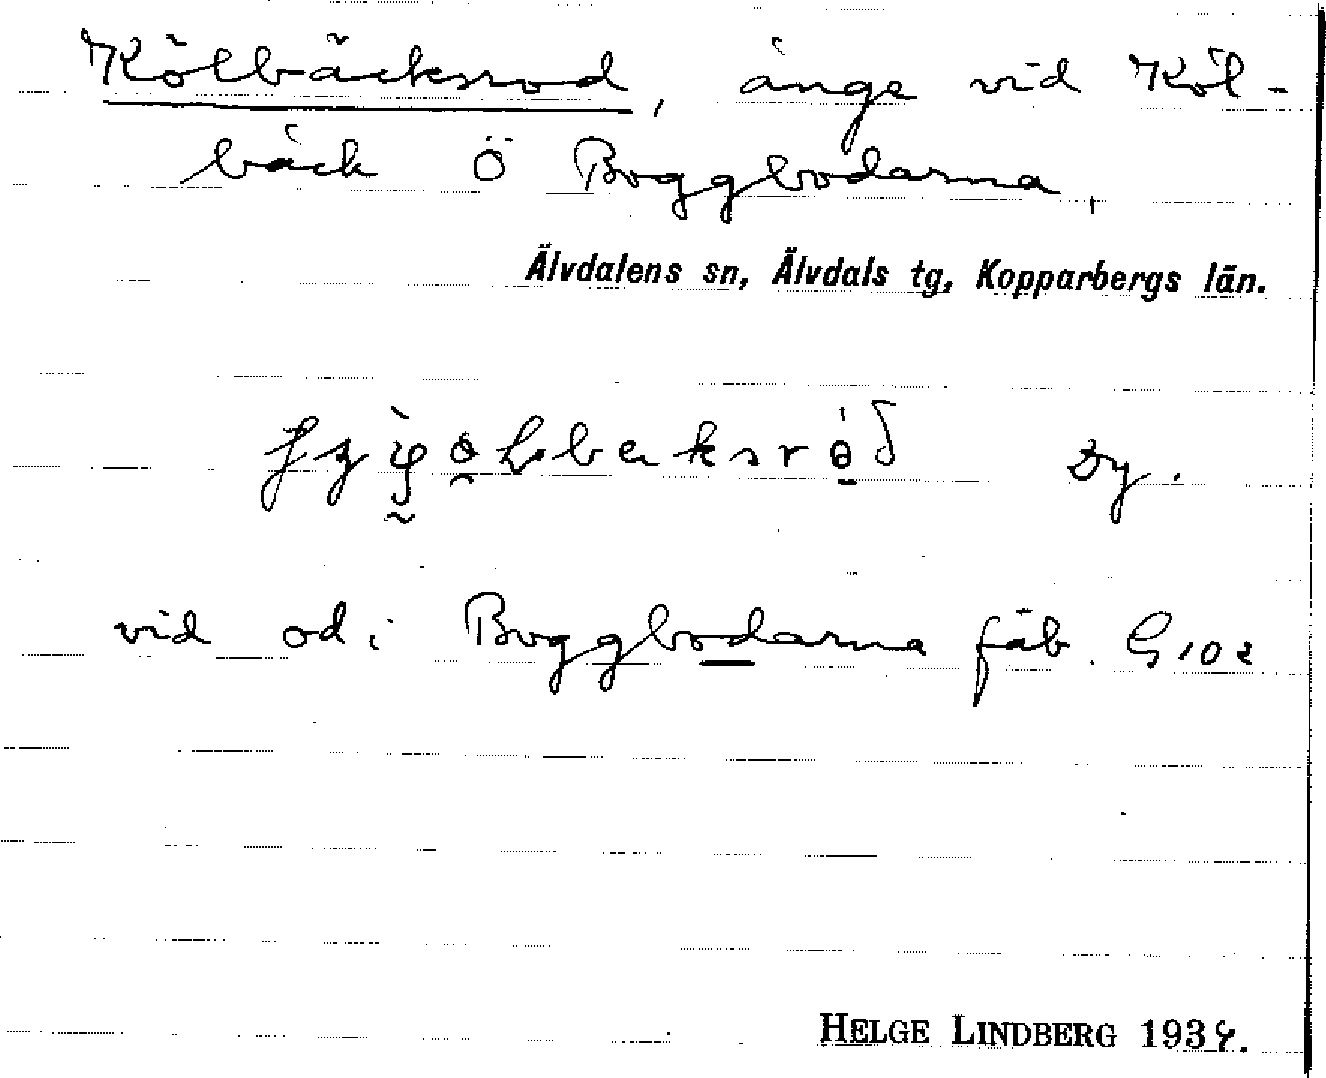 Kölbäcksrod, änge vid Köl-
bäck Ö Boggbodarna,
Älvdalens sn, Älvdals tg, Kopparbergs län.
Dy.
vid od i Boggbodarna fäb. G 10 e
HELGE LINDBERG 1934.